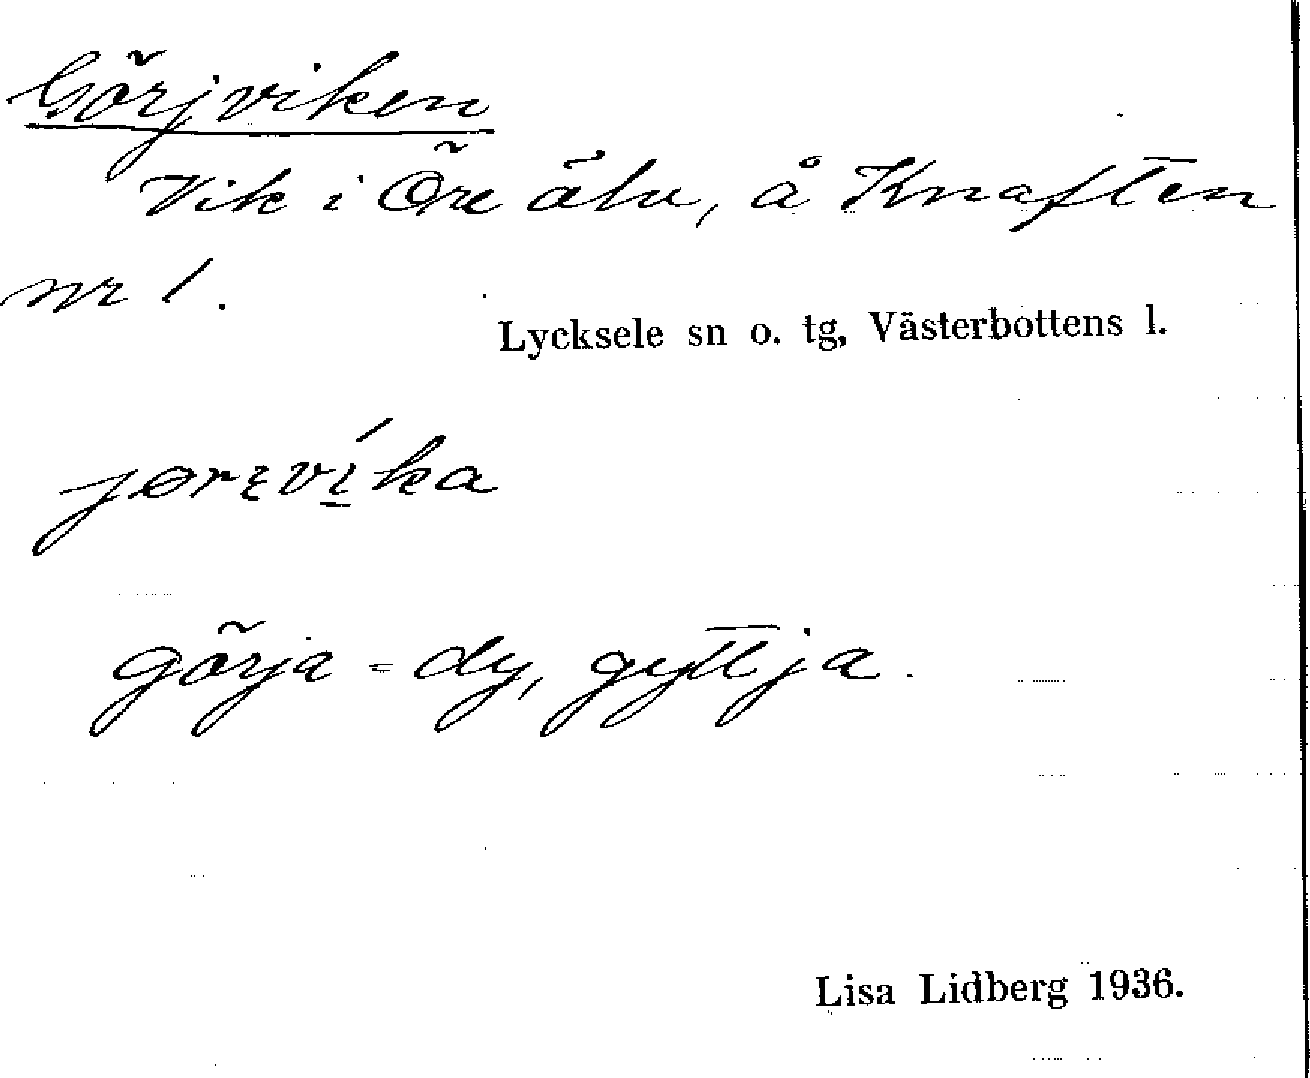 Görjviken
Vik i Öre älv, å Knaften
nr 1.
Lycksele sn o. tg, Västerbottens l.
jørɛví̱ka
görja = dy, gyttja.
Lisa Lidberg 1936.